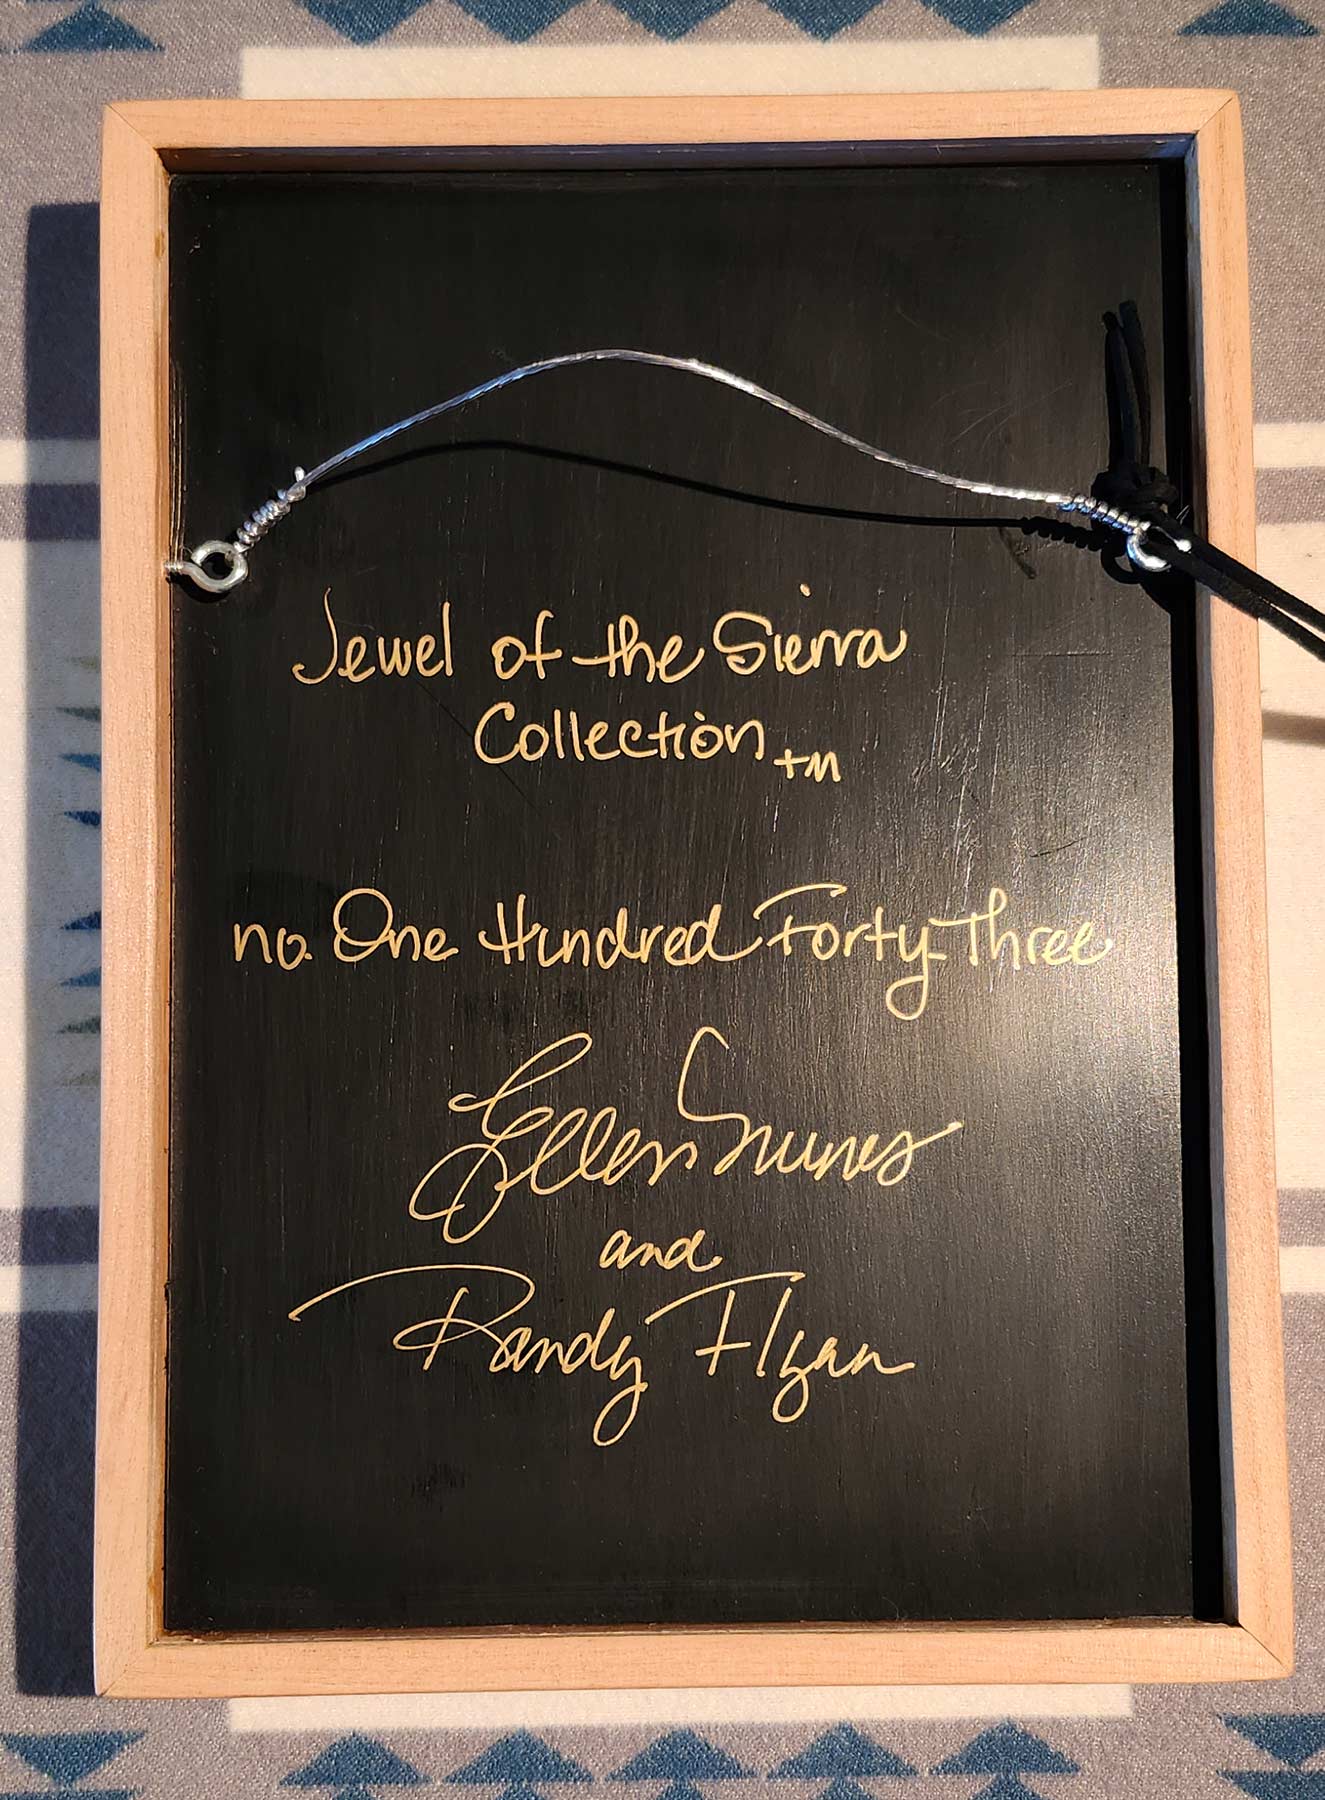 Jewel of the Sierra
Collection TM
no. One Hundred Forty-Three
Ellen Nunes
and
Randy Flyan